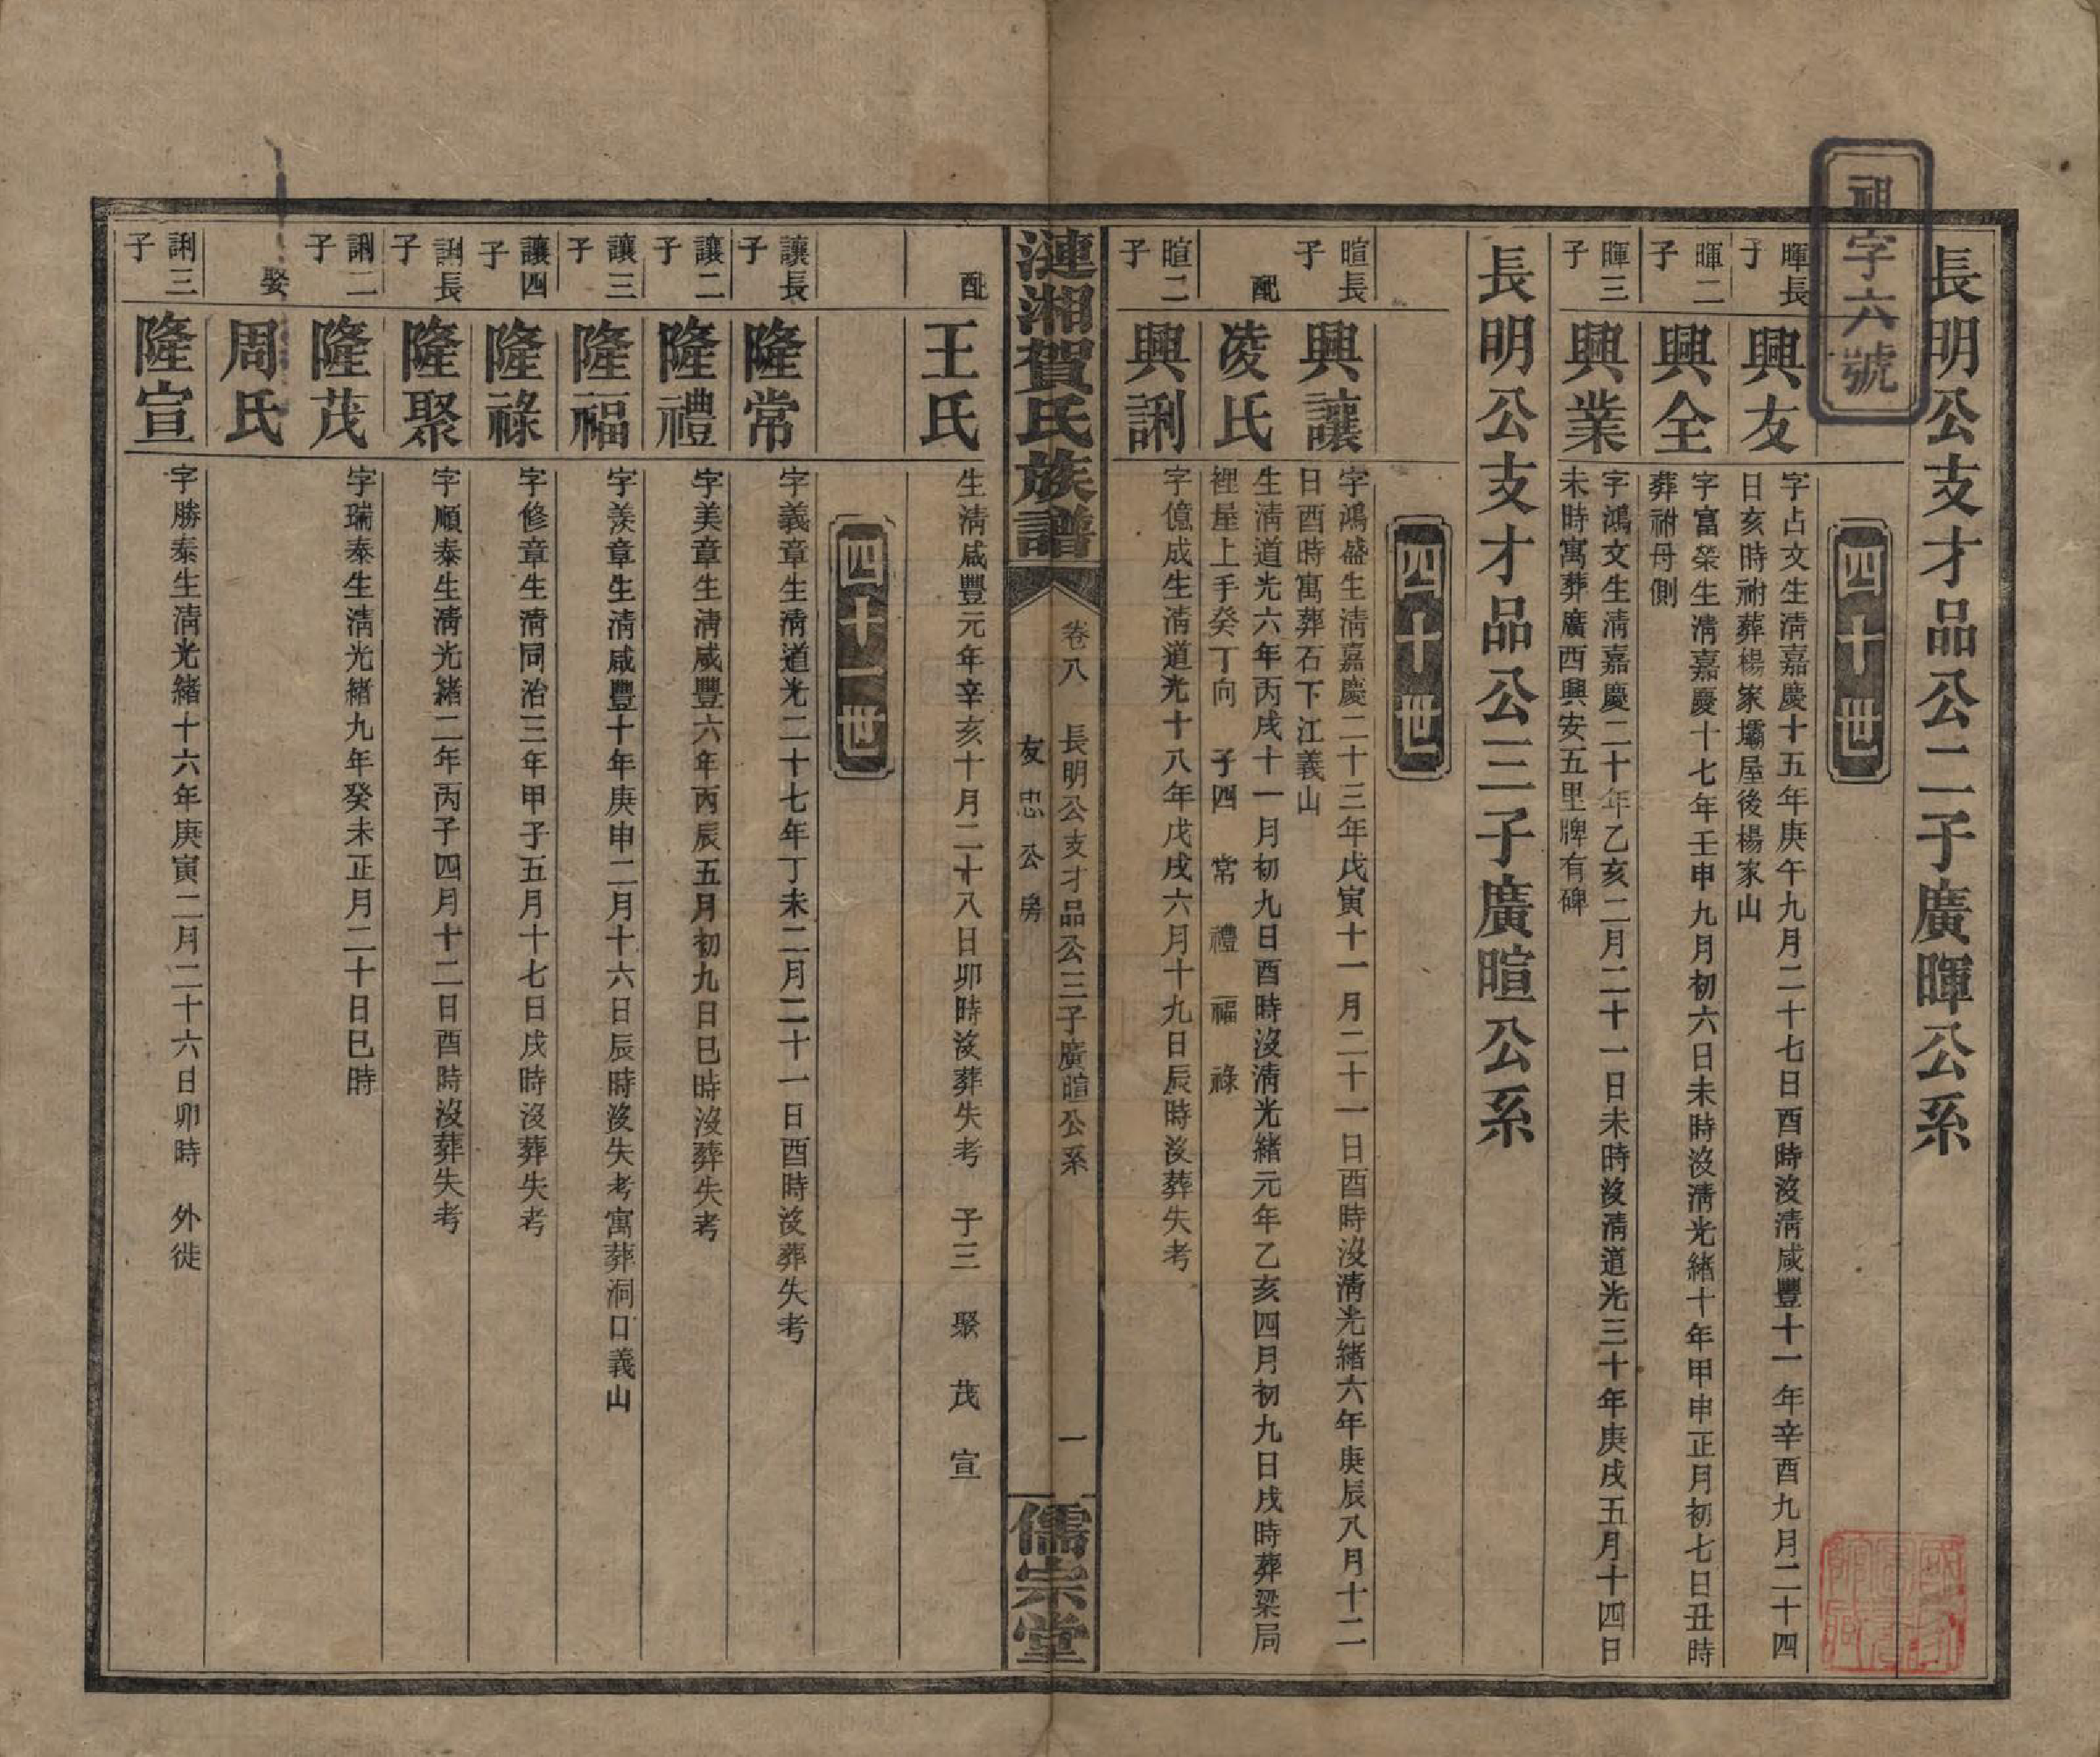 祖字六號
長明公支才品公二子廣暉公系
四十世
暉長子
興友
字占文生清嘉慶十五年庚午九月二十七日酉時沒清咸豐十一年辛酉九月二十四
日亥時祔葬楊家壩屋後楊家山
暉二子
興全
字富榮生清嘉慶十七年壬申九月初六日未時沒清光緒十年甲申正月初七日丑時
葬祔母側
暉三子
興業
字鴻文生清嘉慶二十年乙亥二月二十一日未時沒清道光三十年庚戌五月十四日
未時寓葬廣西興安五里牌有碑
長明公支才品公三子廣暄公系
四十世
暄長子
興讓
字鴻盛生清嘉慶二十三年戊寅十一月二十一日酉時沒清光緒六年庚辰八月十二
日酉時寓葬石下江義山
配
凌氏
生清道光六年丙戌十一月初九日酉時沒清光緒元年乙亥四月初九日戌時葬梁局
裡屋上手癸丁向 子四 常 禮 福 祿
暄二子
興誗
字億成生清道光十八年戊戌六月十九日辰時沒葬失考
漣湘賀氏族譜
卷八 長明公支才品公三子廣暄公系
友忠公房
一
儒宗堂
配
王氏
生清咸豐元年辛亥十月二十八日卯時沒葬失考 子三 聚 茂 宣
四十一世
讓長子
隆常
字義章生清道光二十七年丁未二月二十一日酉時沒葬失考
讓二子
隆禮
字美章生清咸豐六年丙辰五月初九日巳時沒葬失考
讓三子
隆福
字羨章生清咸豐十年庚申二月十六日辰時沒失考寓葬洞口義山
讓四子
隆祿
字修章生清同治三年甲子五月十七日戌時沒葬失考
誗長子
隆聚
字順泰生清光緒二年丙子四月十二日酉時沒葬失考
誗二子
隆茂
字瑞泰生清光緒九年癸未正月二十日巳時
娶
周氏
誗三子
隆宣
字勝泰生清光緒十六年庚寅二月二十六日卯時 外徙